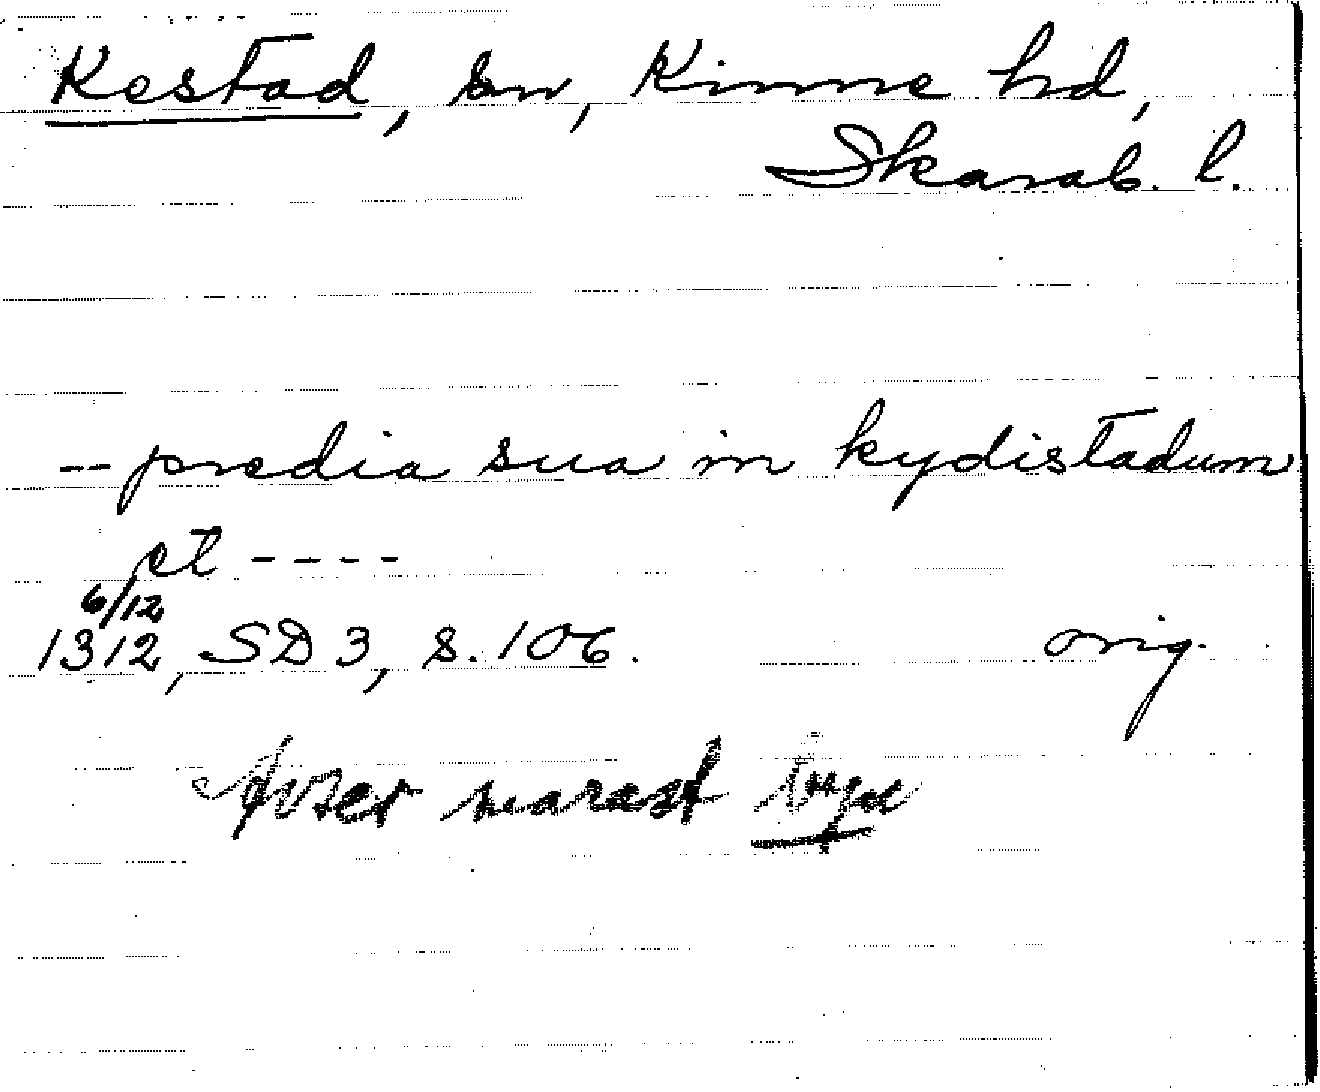 Kestad, sn, Kinne hd,
Skarab. l.
-- predia sua in kydistadum
et ----
6/12
1312, SD 3, s. 106. orig.
Avser närmast byn